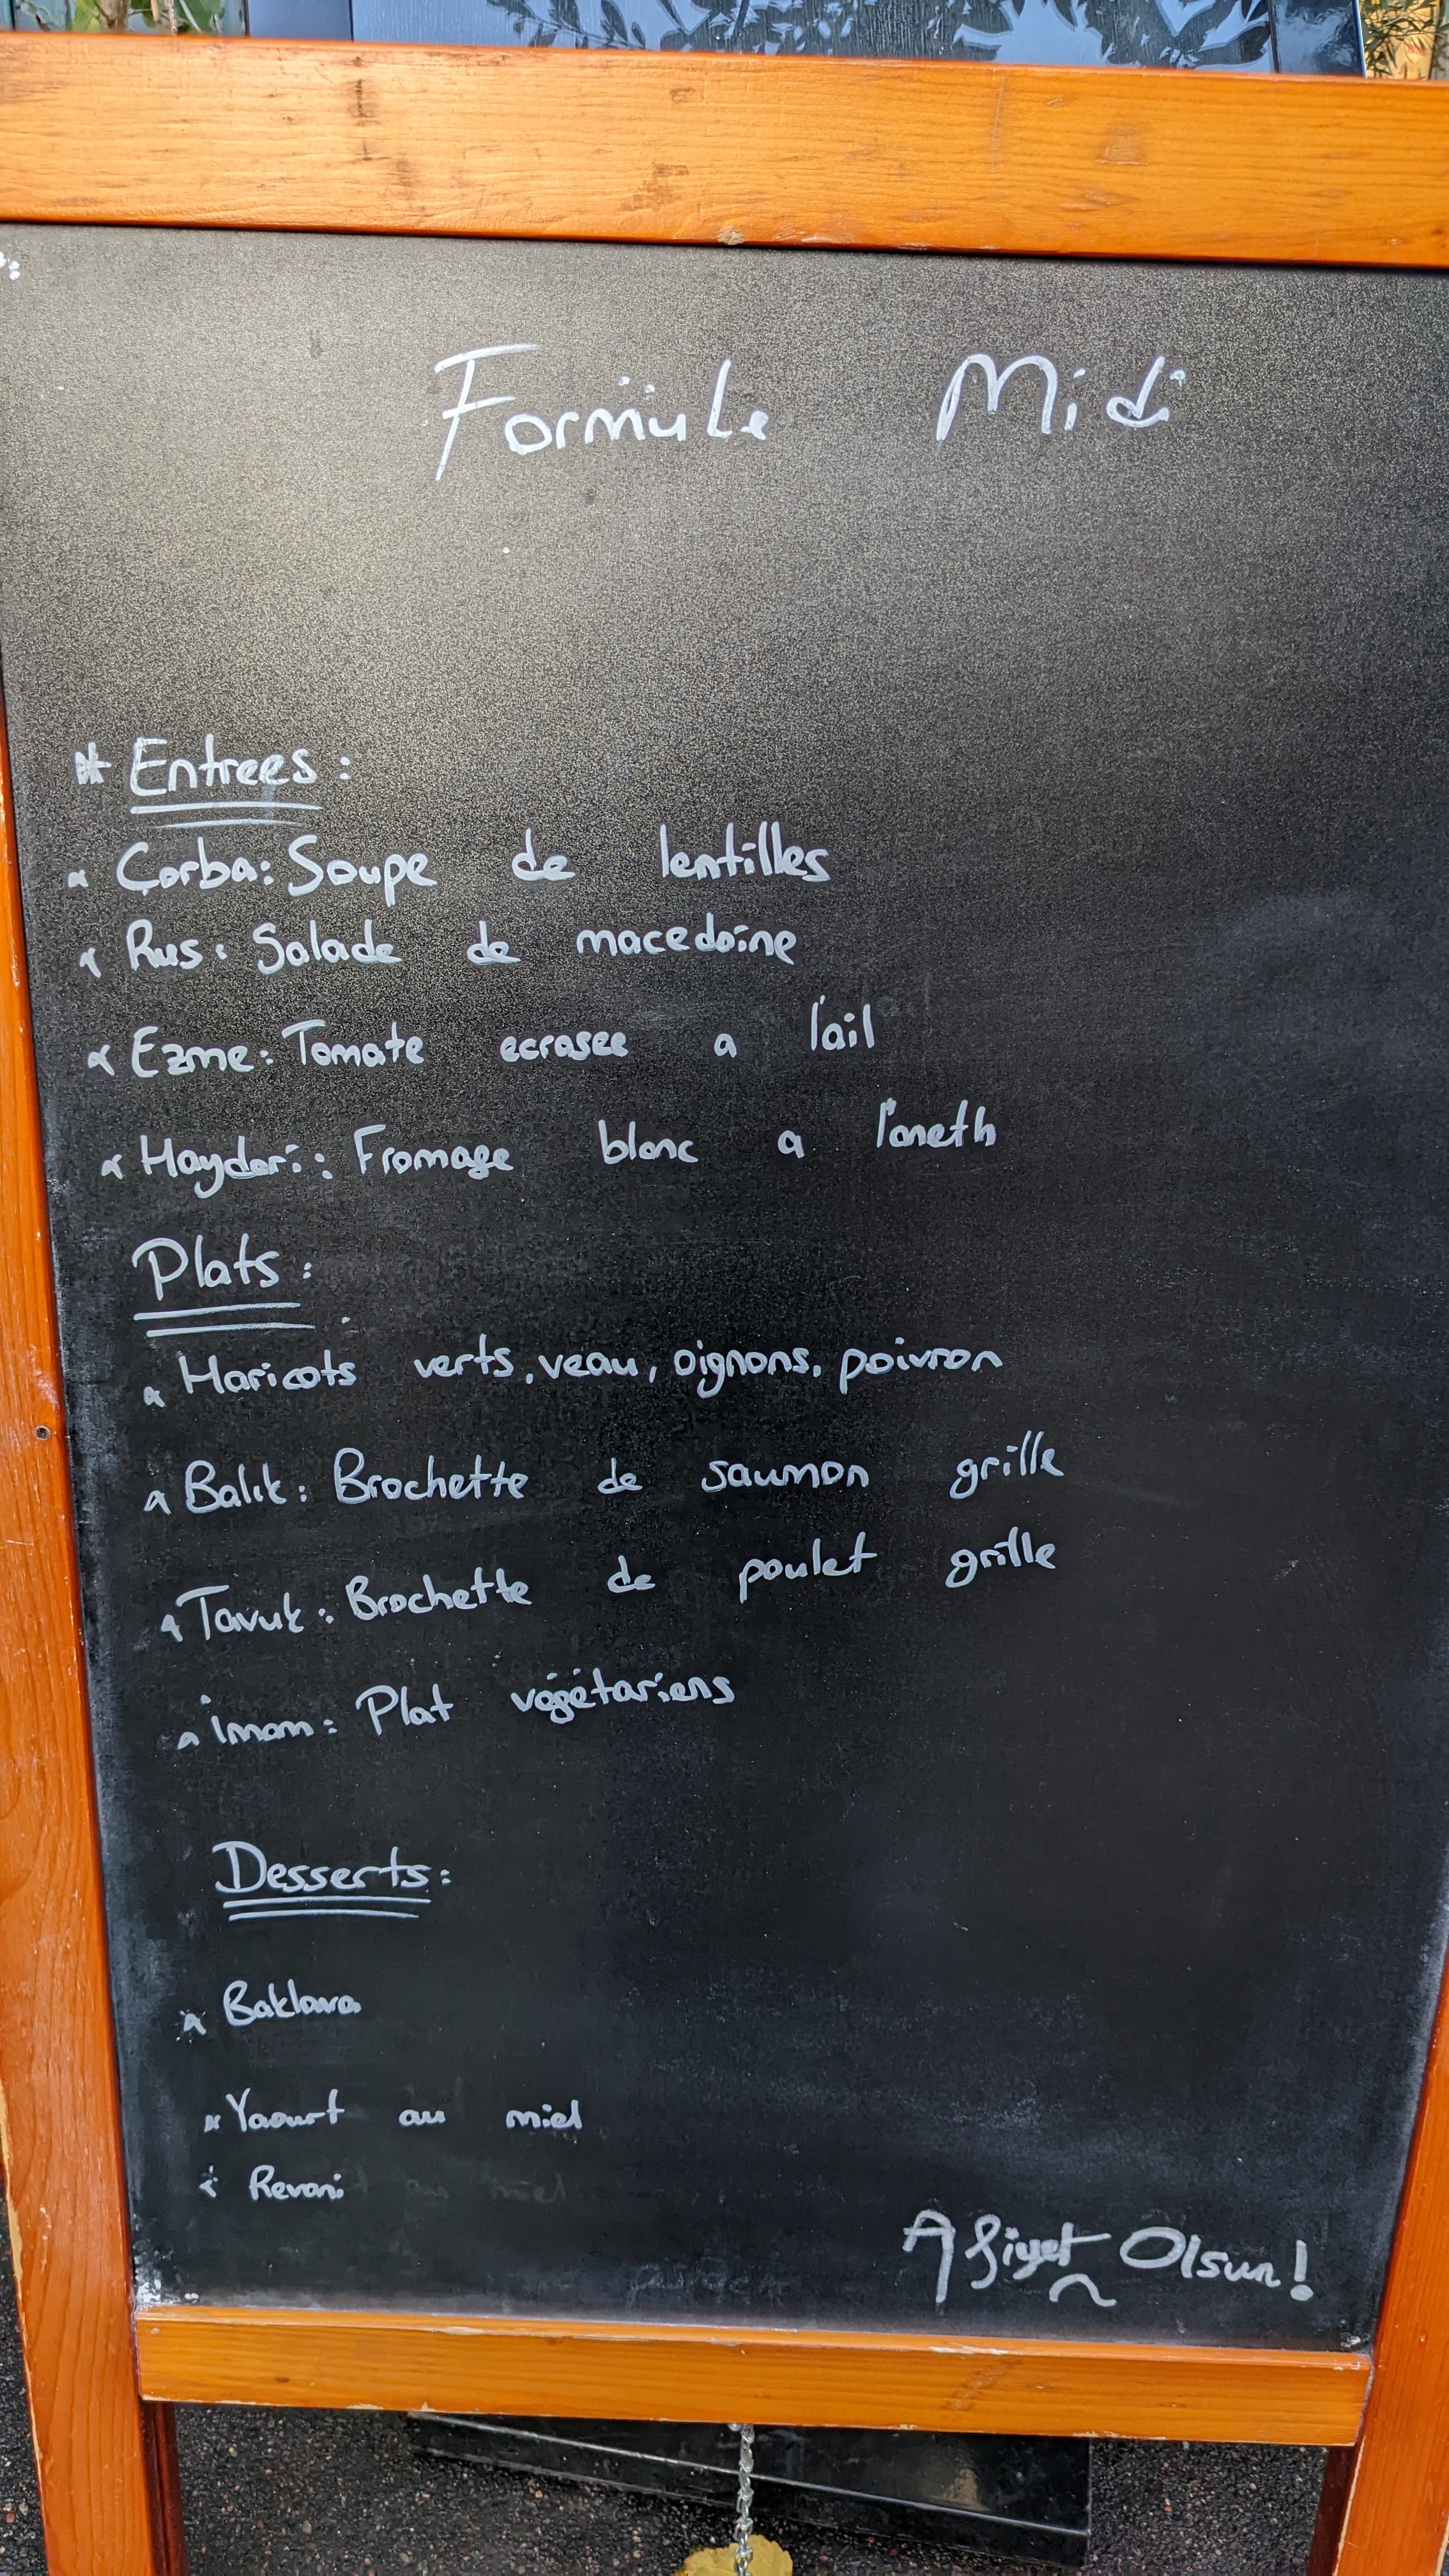 Formule Midi
* Entrees :
* Çorba: Soupe de lentilles
* Rus: Salade de macedoine
* Ezme: Tomate ecrasee a l'ail
* Haydari: Fromage blanc a l'aneth
Plats :
* Haricots verts, veau, oignons, poivron
* Balık: Brochette de saumon grille
* Tavuk: Brochette de poulet grille
* imam: Plat végétariens
Desserts:
* Baklava
* Yaourt au miel
* Revani
Afiyet Olsun!